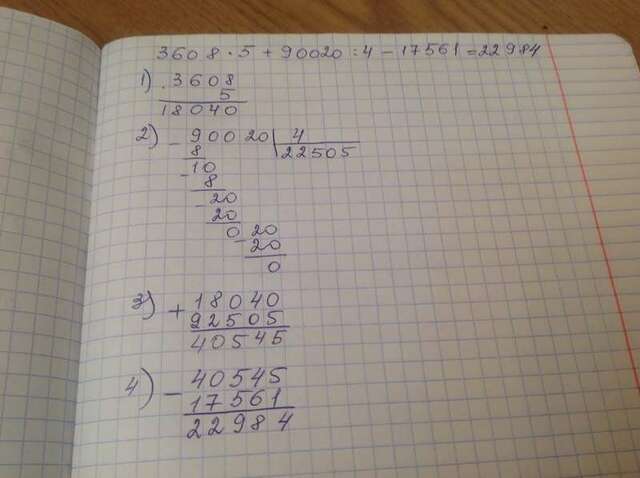 3608 · 5 + 90020 : 4 - 17561 = 22984
1) . 3608
5
18040
2) - 90020 | 4
8 22505
- 10
8
- 20
20
0 - 20
20
0
3) + 18040
22505
40545
4) - 40545
17561
22984